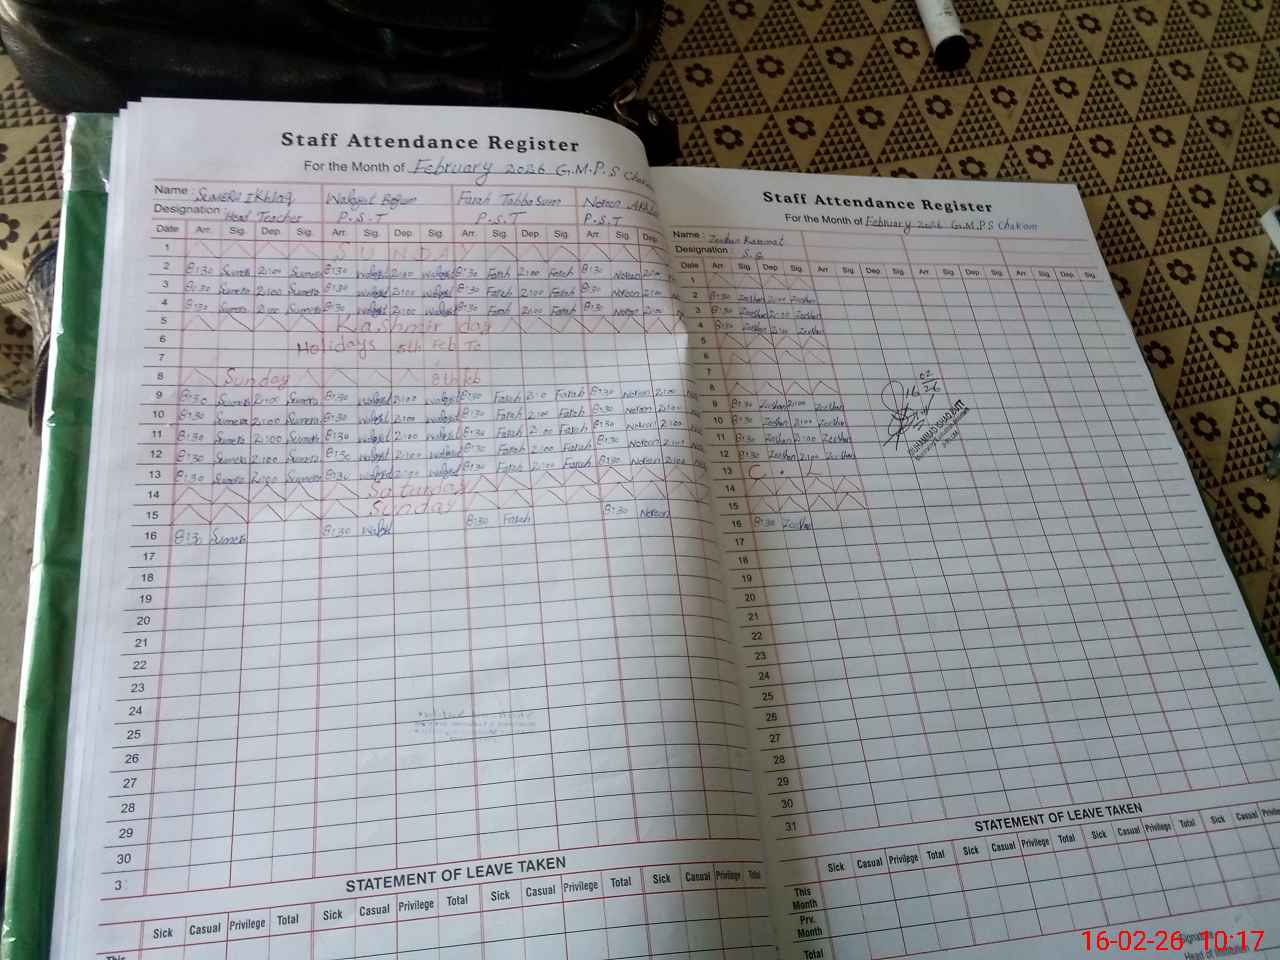 Staff Attendance Register
For the Month of February 2026 G.M.P.S Chakam
Name : Sumera Ikhlaq Farah Tabbasum Noreen
Designation Head Teacher P.S.T P.S.T P.S.T
Date Arr. Sig. Dep. Sig. Arr. Sig. Dep. Sig. Arr. Sig. Dep. Sig. Arr. Sig. Dep.
1 SUNDAY
2 8:30 Sumera 2:00 Sumera 8:30 2:00 8:30 Farah 2:00 Farah 8:30 Noreen 2:00
3 8:30 Sumera 2:00 Sumera 8:30 2:00 8:30 Farah 2:00 Farah 8:30 Noreen 2:00
4 8:30 Sumera 2:00 Sumera 8:30 2:00 8:30 Farah 2:00 Farah 8:30 Noreen 2:00
5 Kashmir day
6 Holidays 5th Feb To
7
8 Sunday 8th Feb
9 8:30 Sumera 2:00 Sumera 8:30 2:00 8:30 Farah 2:00 Farah 8:30 Noreen 2:00
10 8:30 Sumera 2:00 Sumera 8:30 2:00 8:30 Farah 2:00 Farah 8:30 Noreen 2:00
11 8:30 Sumera 2:00 Sumera 8:30 2:00 8:30 Farah 2:00 Farah 8:30 Noreen 2:00
12 8:30 Sumera 2:00 Sumera 8:30 2:00 8:30 Farah 2:00 Farah 8:30 Noreen 2:00
13 8:30 Sumera 2:00 Sumera 8:30 2:00 8:30 Farah 2:00 Farah 8:30 Noreen 2:00
14 Saturday
15 Sunday
16 8:30 Sumera 8:30 8:30 Farah 8:30 Noreen
17
18
19
20
21
22
23
24
25
26
27
28
29
30
3
STATEMENT OF LEAVE TAKEN
Sick Casual Privilege Total Sick Casual Privilege Total Sick Casual Privilege Total Sick Casual Privilege Total
Staff Attendance Register
For the Month of February 2026 G.M.P.S Chakam
Name : Zeshan
Designation :
Date Arr. Sig. Dep. Sig. Arr Sig. Dep. Sig. Arr. Sig. Dep. Sig. Arr. Sig. Dep. Sig.
1
2 8:30 Zeshan 2:00 Zeshan
3 8:30 Zeshan 2:00 Zeshan
4 8:30 Zeshan 2:00 Zeshan
5
6
7
8
9 8:30 Zeshan 2:00 Zeshan
10 8:30 Zeshan 2:00 Zeshan
11 8:30 Zeshan 2:00 Zeshan
12 8:30 Zeshan 2:00 Zeshan
13 C . L
14
15
16 8:30 Zeshan
17
18
19
20
21
22
23
24
25
26
27
28
29
30
31
STATEMENT OF LEAVE TAKEN
Sick Casual Privilege Total Sick Casual Privilege Total Sick Casual
This Month
Prv. Month
Total
Head of Institution
16-02-26 10:17